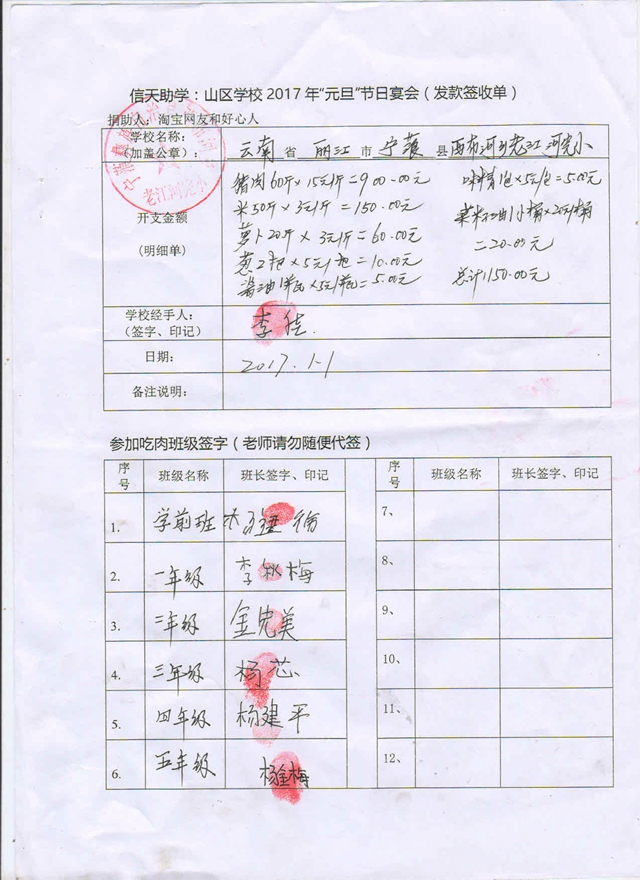 信天助学：山区学校2017年“元旦”节日宴会（发款签收单）
捐助人：淘宝网友和好心人
学校名称：
（加盖公章）：
云南省 丽江市 宁蒗县
河完小
老江河完小
开支金额
(明细单)
猪肉60斤×15元/斤=900.00元
米50斤×3元/斤=150.00元
萝卜20斤×3元/斤=60.00元
葱2把×5元/把=10.00元
酱油1瓶×5元/瓶=5.00元
味精1包×5元/包=5.00元
菜籽油1小桶×20元/桶
=20.00元
总计1150.00元
学校经手人：
（签字、印记）
李佳
日期：
2017.1.1
备注说明：
参加吃肉班级签字（老师请勿随便代签）
序号 班级名称 班长签字、印记 序号 班级名称 班长签字、印记
1. 学前班 7、
2. 一年级 李秋梅 8、
3. 二年级 金先美 9、
4. 三年级 杨芯 10、
5. 四年级 杨建平 11、
6. 五年级 杨金梅 12、